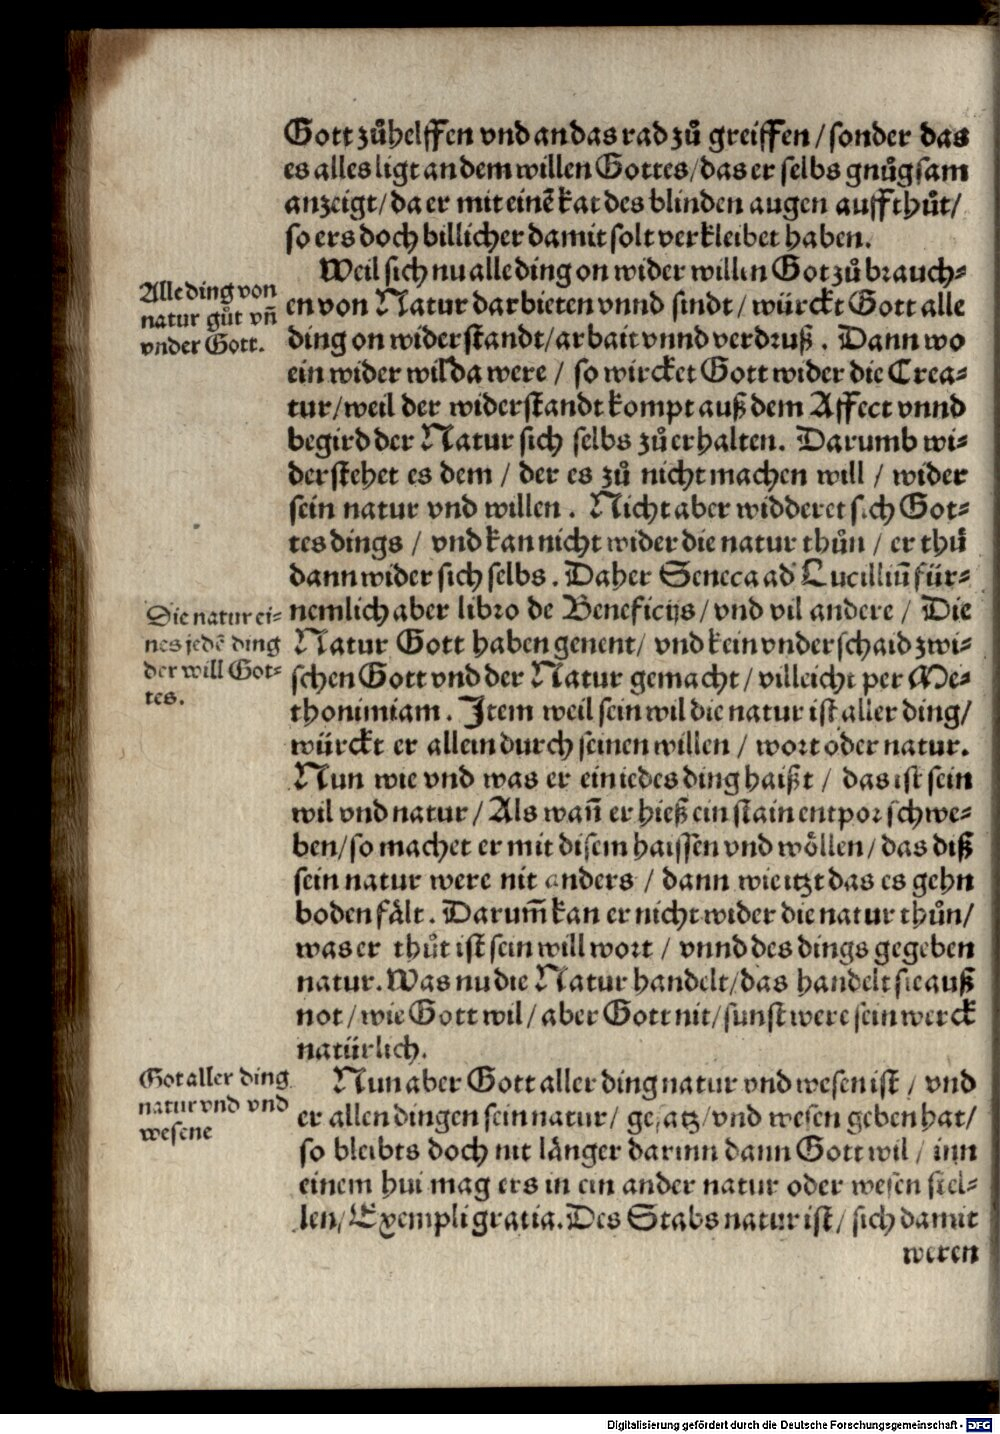 Gott zůhelffen vnd an das rad zů greiffen / sonder das
es alles ligt an dem willen Gottes / das er selbs gnůgsam
anzeigt / da er mit einẽ kat des blinden augen auff thůt /
so ers doch billicher damit solt verkleibet haben.
Alle ding von
natur gůt vñ
vnder Gott.
Weil sich nu alle ding on wider willen Got zů brauch⸗
en von Natur darbieten vnnd sindt / würckt Gott alle
ding on widerstandt / arbait vnnd verdruß . Dann wo
ein wider will da were / so wircket Gott wider die Crea⸗
tur / weil der widerstandt kompt auß dem Affect vnnd
begird der Natur sich selbs zů erhalten. Darumb wi⸗
derstehet es dem / der es zů nicht machen will / wider
sein natur vnd willen . Nicht aber widderet sich Got⸗
tes dings / vnd kan nicht wider die natur thůn / er thů
dann wider sich selbs . Daher Seneca ad Lucilliũ für⸗
Die natur ei⸗
nes jedẽ ding
der will Got⸗
tes.
nemlich aber libro de Beneficijs / vnd vil andere / Die
Natur Gott haben genent / vnd kein vnderschaid zwi⸗
schen Gott vnd der Natur gemacht / villeicht per Me⸗
thonimiam . Item weil sein wil die natur ist aller ding /
würckt er allein durch seinen willen / wort oder natur.
Nun wie vnd was er ein iedes ding haißt / das ist sein
wil vnd natur / Als wañ er hieß ein stain entpor schwe⸗
ben / so machet er mit disem haissen vnd wöllen / das diß
sein natur were nit anders / dann wie itzt das es gehn
boden fält . Darum̃ kan er nicht wider die natur thůn /
was er thůt ist sein will wort / vnnd des dings gegeben
natur. Was nu die Natur handelt / das handelt sie auß
not / wie Gott wil / aber Gott nit / sunst were sein werck
natürlich.
Got aller ding
natur vnd vnd
wesene
Nun aber Gott aller ding natur vnd wesen ist / vnd
er allen dingen sein natur / gesatz / vnd wesen geben hat /
so bleibts doch nit länger darinn dann Gott wil / inn
einem hui mag ers in ein ander natur oder wesen stel⸗
len / Exempli gratia. Des Stabs natur ist / sich damit
weren
Digitalisierung gefördert durch die Deutsche Forschungsgemeinschaft - DFG